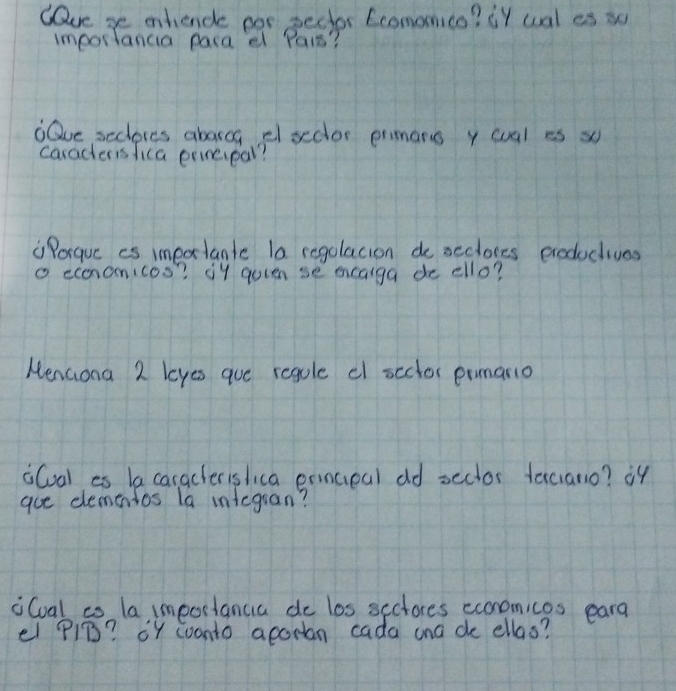 ¿Que se entiende por sector Ecomomico? ¿Y cual es su
importancia para el Pais?
¿Que sectores abarca el sector primario y cual es su
caracteristica principal?
¿Porque es importante la regulacion de sectores productivos
o economicos? ¿Y quien se encarga de ello?
Menciona 2 leyes que regule el sector primario
¿Cual es la caracteristica principal del sector terciario? ¿Y
que elementos la integran?
¿Cual es la importancia de los sectores economicos para
el PIB? ¿Y cuanto aportan cada una de ellas?